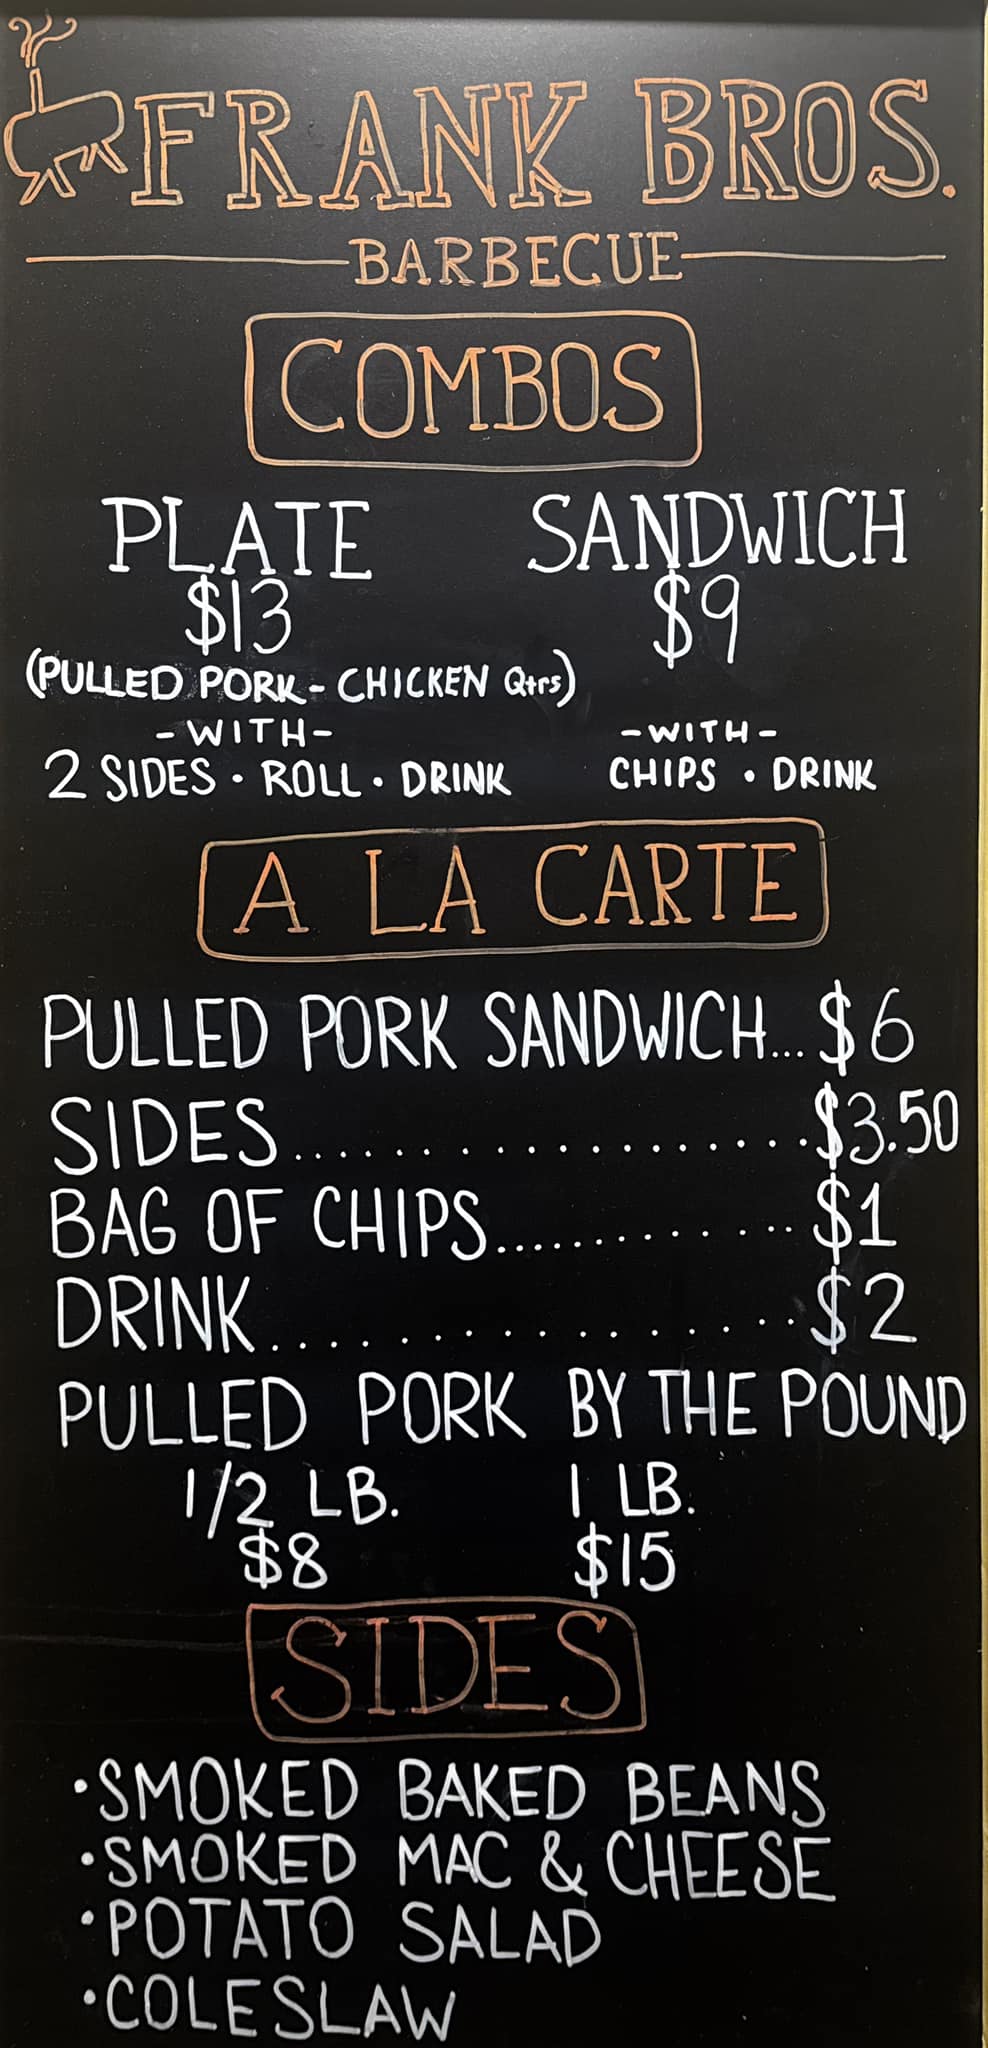 FRANK BROS.
BARBECUE
COMBOS
PLATE
$13
(PULLED PORK - CHICKEN Qtrs)
-WITH-
2 SIDES • ROLL • DRINK
SANDWICH
$9
-WITH-
CHIPS • DRINK
A LA CARTE
PULLED PORK SANDWICH... $6
SIDES.................... $3.50
BAG OF CHIPS............. $1
DRINK.................. $2
PULLED PORK BY THE POUND
1/2 LB.
$8
1 LB.
$15
SIDES
•SMOKED BAKED BEANS
•SMOKED MAC & CHEESE
•POTATO SALAD
•COLESLAW